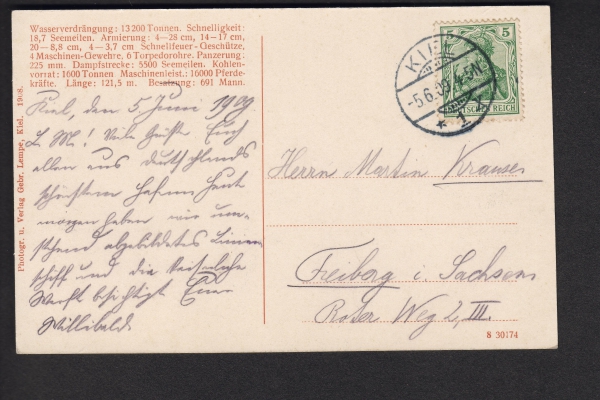 Wasserverdrängung: 13200 Tonnen. Schnelligkeit:
18,7 Seemeilen. Armierung: 4—28 cm, 14—17 cm,
20—8,8 cm, 4—3,7 cm Schnellfeuer-Geschütze,
4 Maschinen-Gewehre, 6 Torpedorohre. Panzerung:
225 mm. Dampfstrecke: 5500 Seemeilen. Kohlen-
vorrat: 1600 Tonnen Maschinenleist.: 16000 Pferde-
kräfte. Länge: 121,5 m. Besatzung: 691 Mann.
Kiel, den 5. Juni 1909.
L. M! Viele Grüße Euch
allen aus Deutschlands
schönstem Hafen. Heute
morgen haben wir um-
stehend abgebildetes Linien-
schiff und die Kaiserliche
Werft besichtigt. Euer
Willibald.
Photogr. u. Verlag Gebr. Lempe, Kiel. 1908.
5
DEUTSCHES REICH
KIEL
-5.6.09.4-5N.
* 1
Herrn Martin Krauser
Freiberg i. Sachsen
Roter Weg 2, III.
8 30174